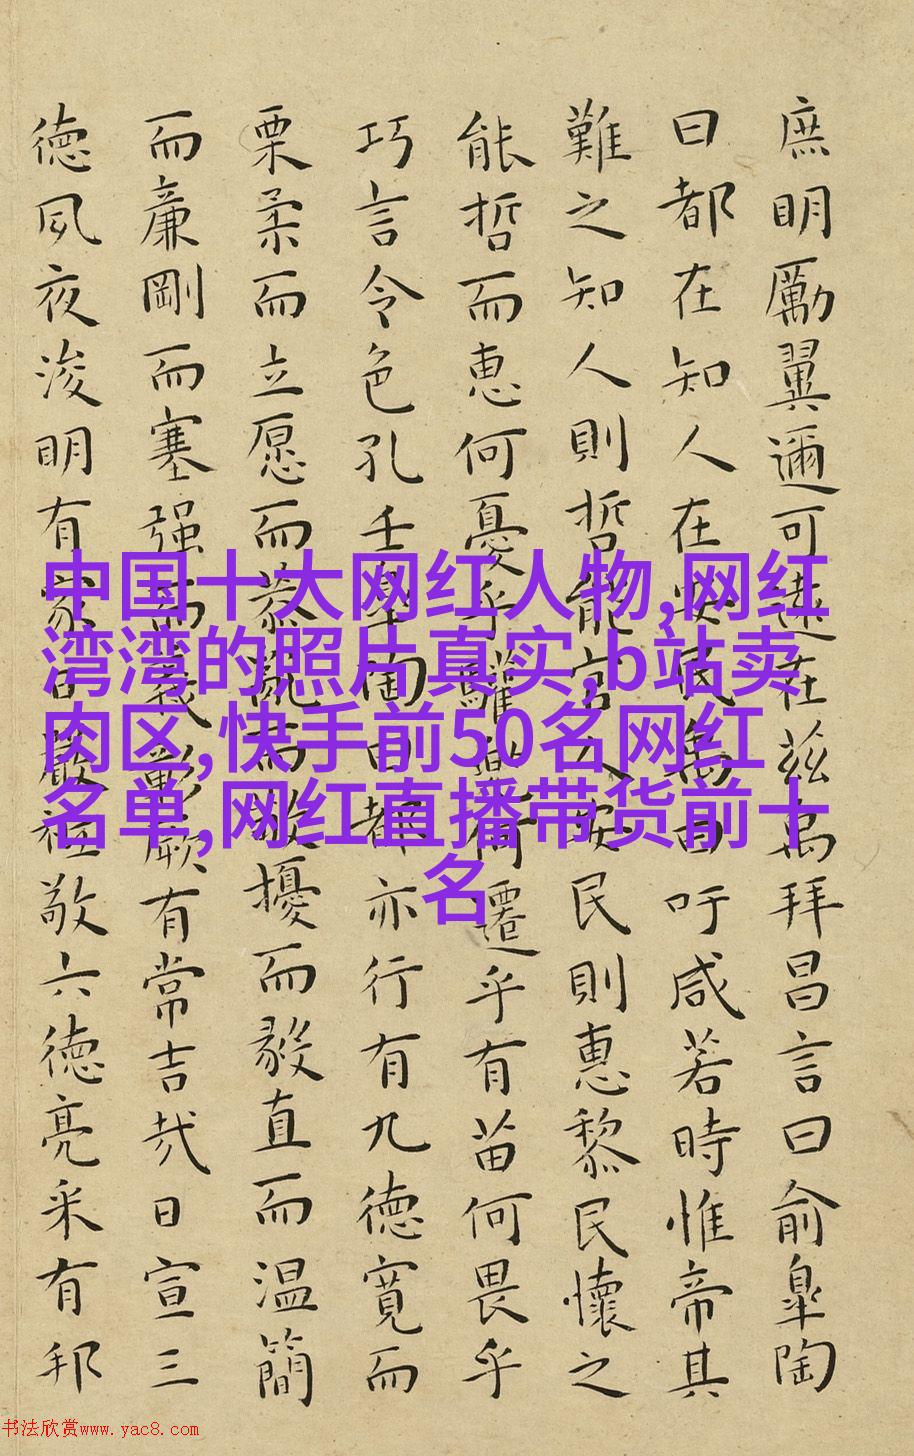 庶明勵翼邇可遠在茲禹拜昌言曰俞皐陶
曰都在知人在安民禹曰吁咸若時惟帝其
難之知人則哲能官人安民則惠黎民懷之
能哲而惠何憂乎驩兜何遷乎有苗何畏乎
巧言令色孔壬皐陶曰都亦行有九德寬而
栗柔而立愿而恭亂而敬擾而毅直而温簡
而廉剛而塞强而義彰厥有常吉哉日宣三
德夙夜浚明有家日嚴祗敬六德亮采有邦
中国十大网红人物,网红
湾湾的照片真实,b站卖
肉区,快手前50名网红
名单,网红直播带货前十
名
书法欣赏www.yac8.com